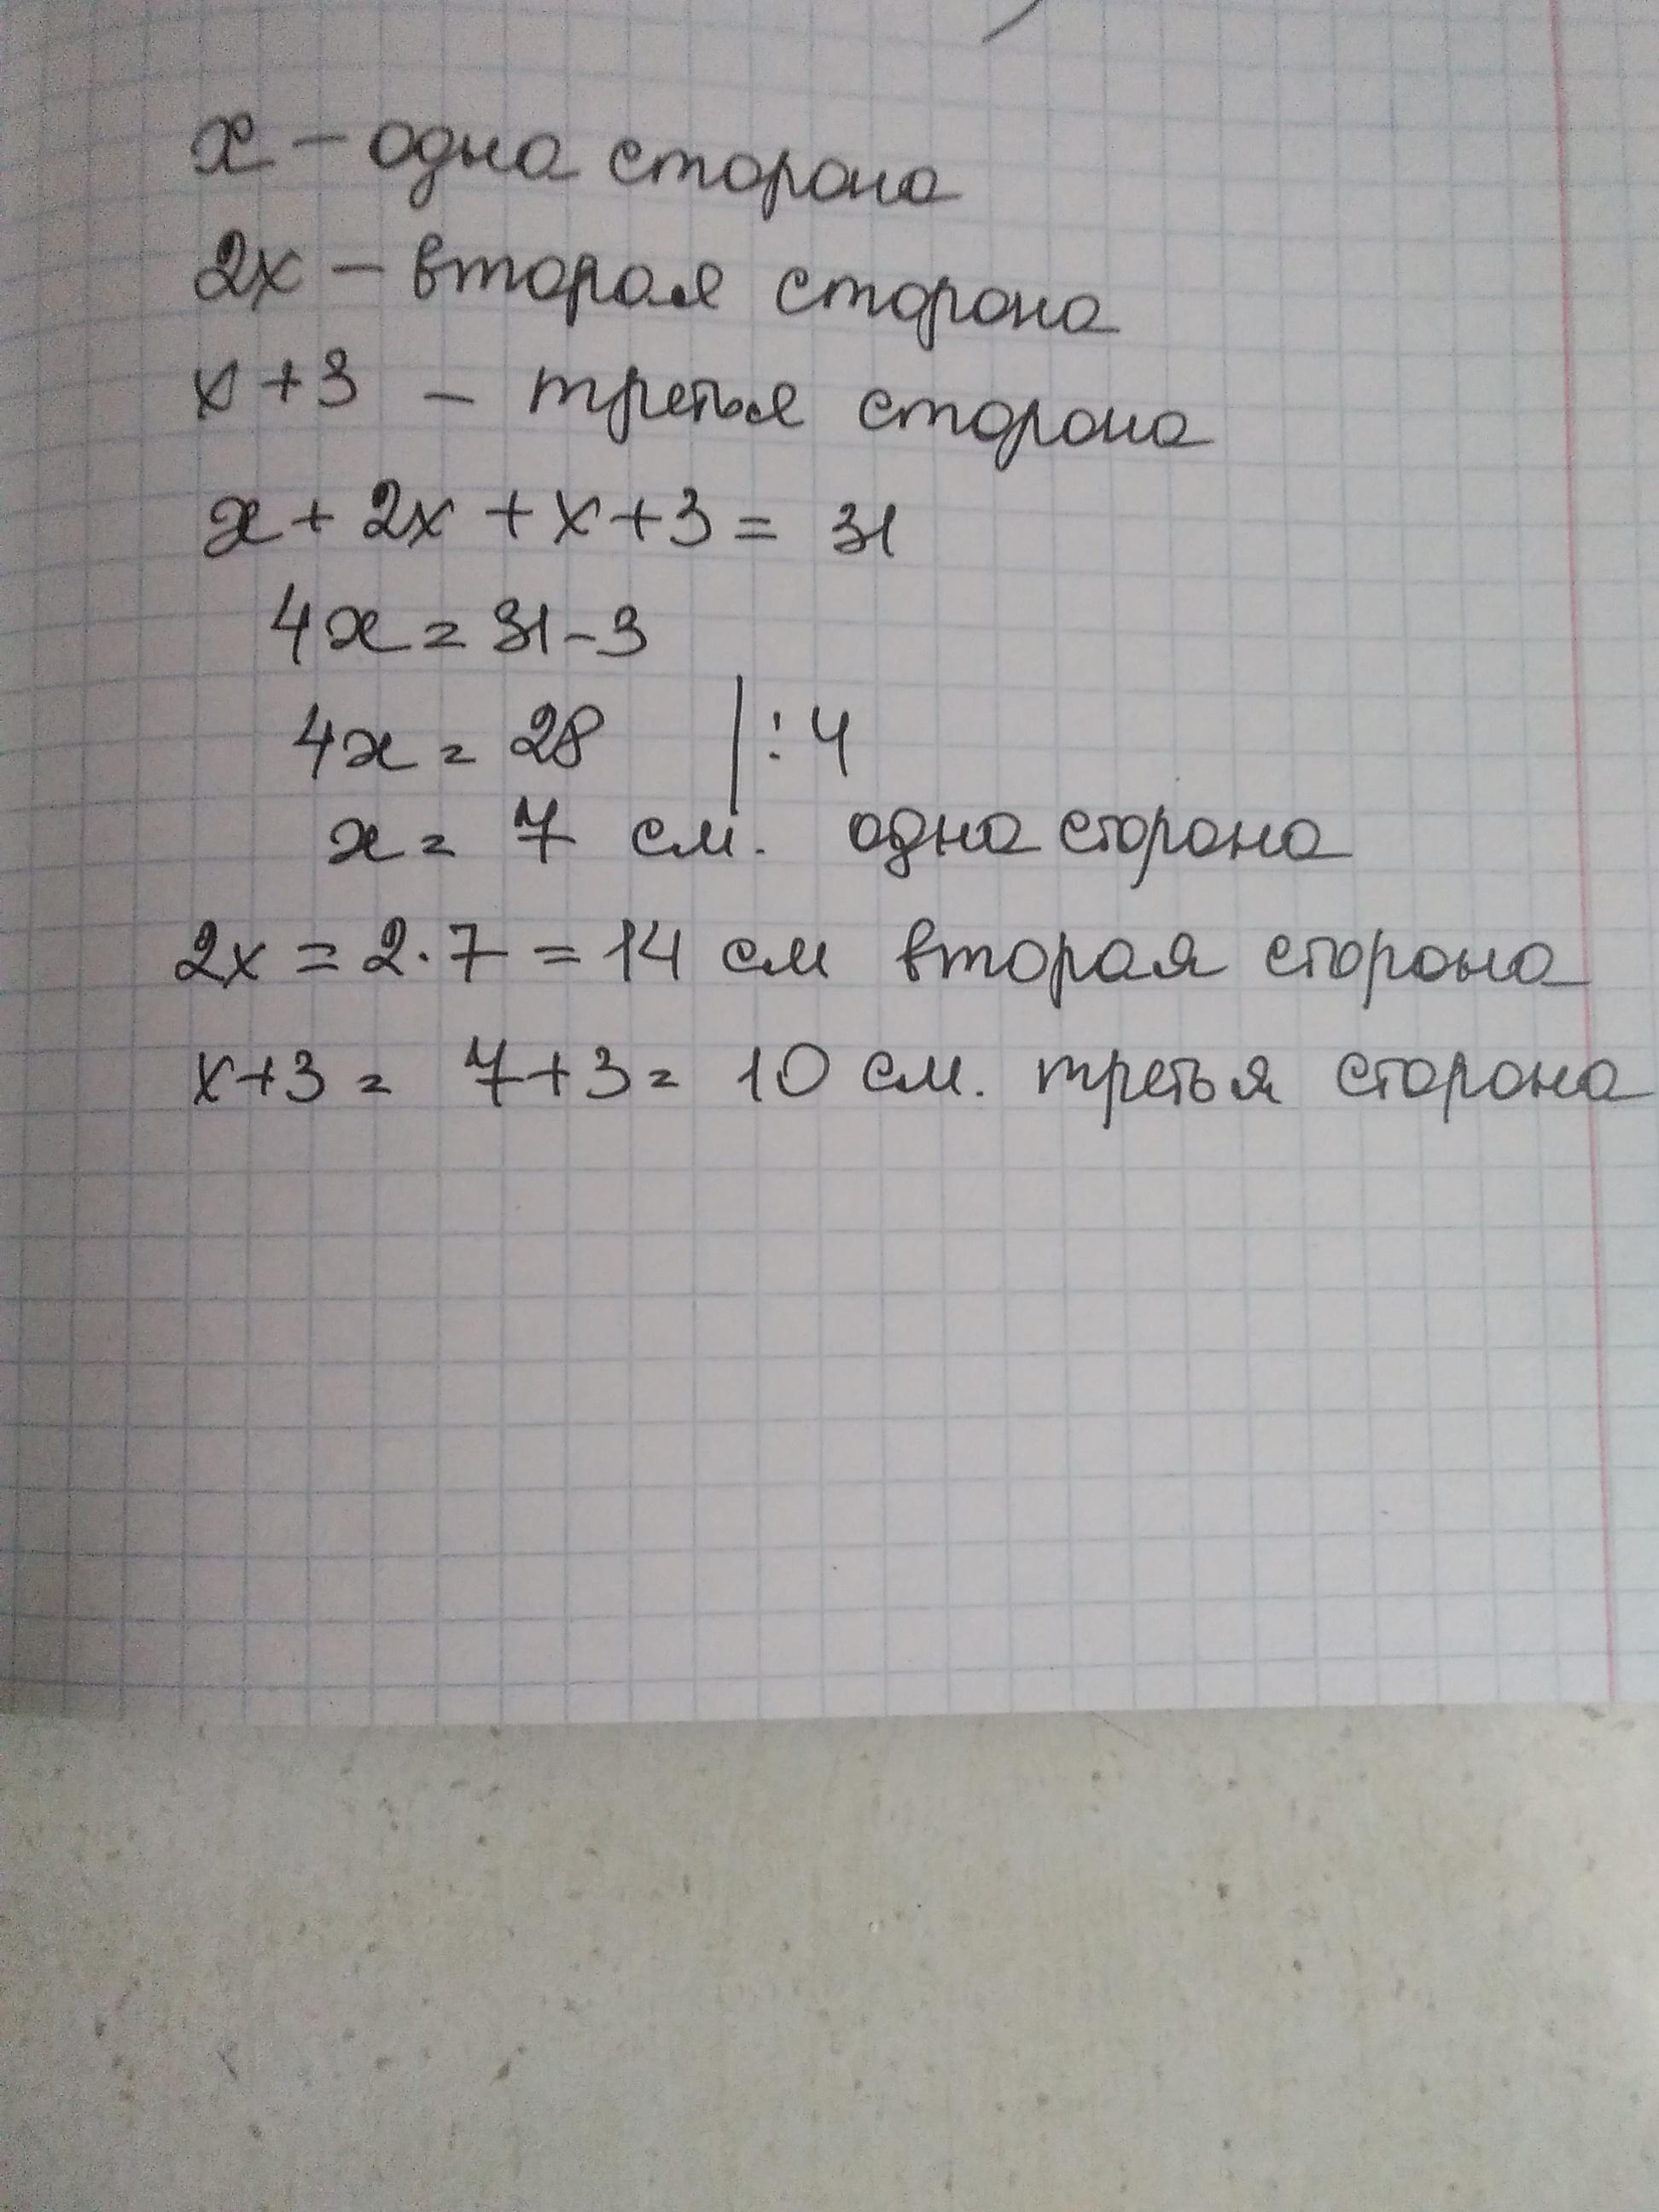 x – одна сторона
2x – вторая сторона
x + 3 – третья сторона
x + 2x + x + 3 = 31
4x = 31 - 3
4x = 28 | : 4
x = 7 см. одна сторона
2x = 2 · 7 = 14 см вторая сторона
x + 3 = 7 + 3 = 10 см. третья сторона